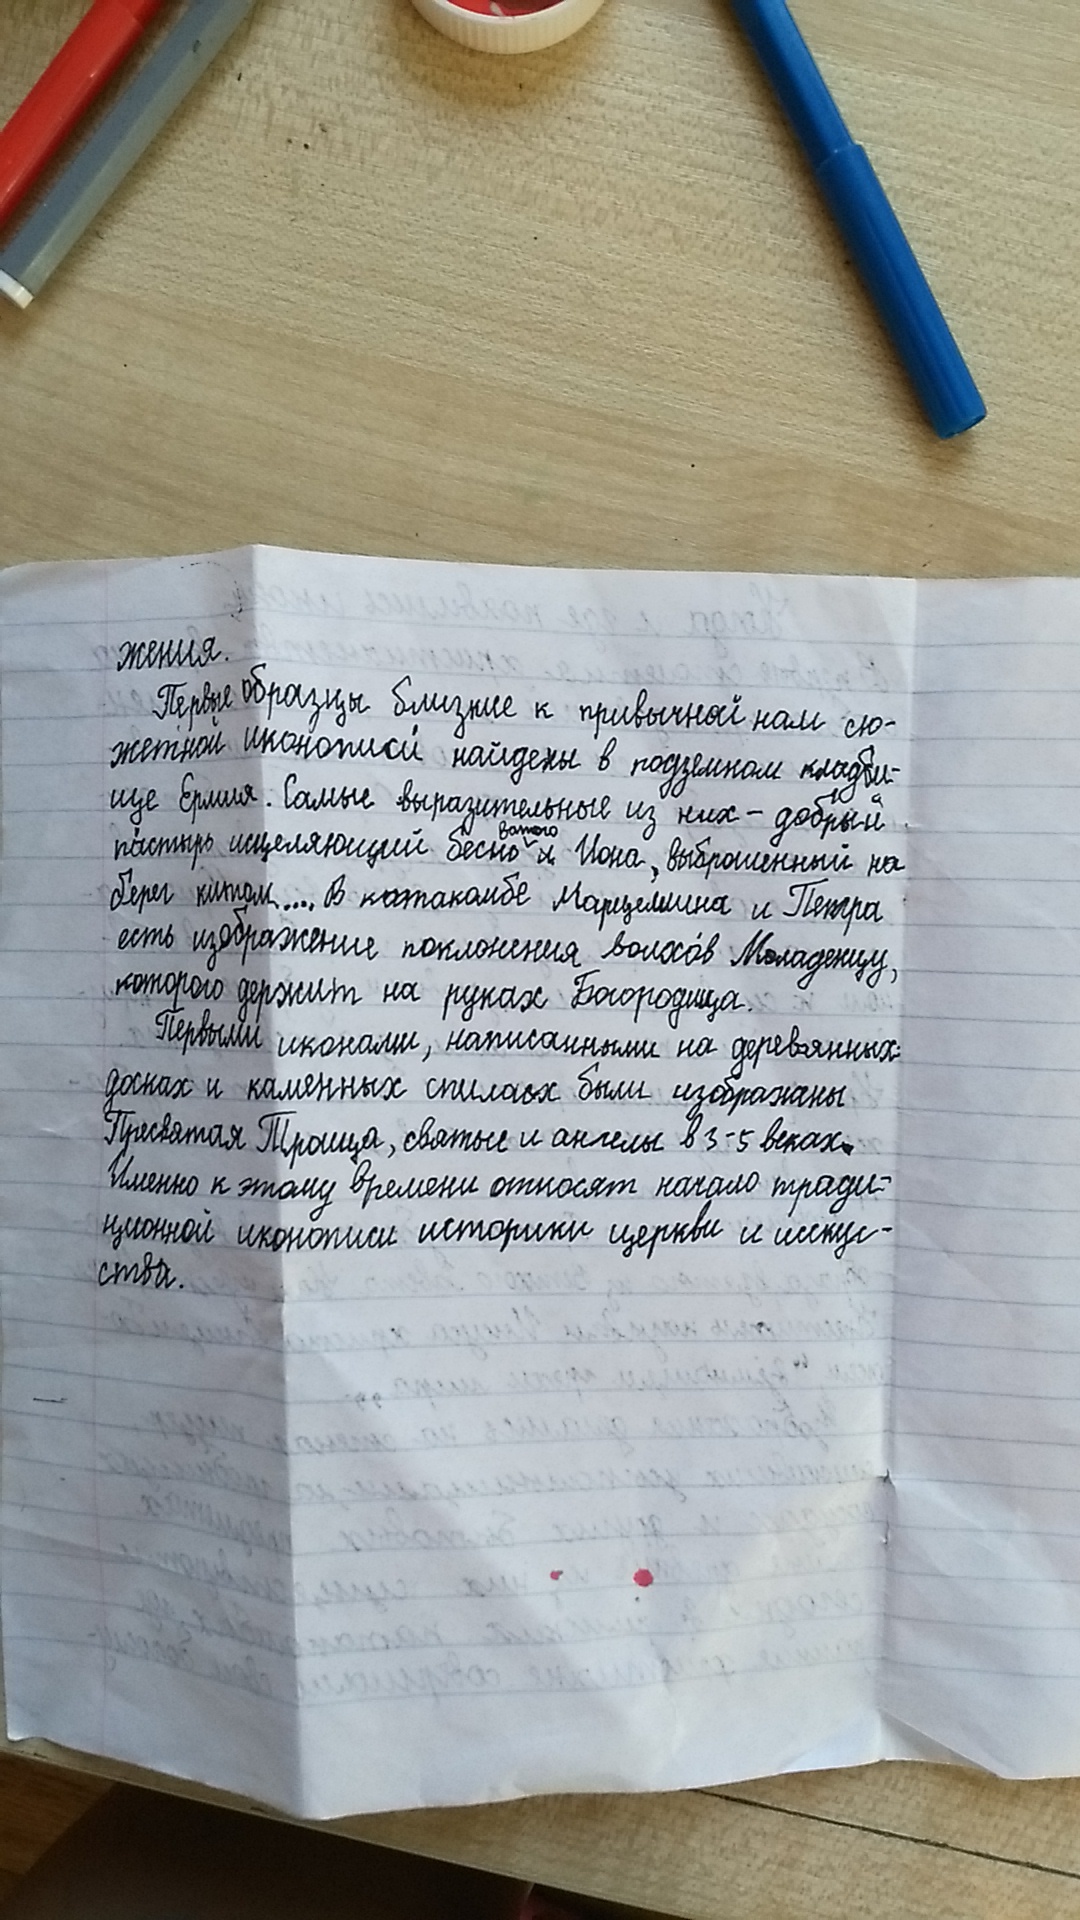 жения.
Первые образцы близкие к привычной нам сю-
жетной иконописи найдены в подземном кладби-
ще Ермия. Самые выразительные из них - добрый
пастырь исцеляющий бесноватого и Иона, выброшенный на
берег китом.... В катакомбе Марцеллина и Петра
есть изображение поклонения волхо́в Младенцу,
которого держит на руках Богородица.
Первыми иконами, написанными на деревянных
досках и каменных спилах были изображаны
Пресвятая Троица, святые и ангелы в 3-5 веках.
Именно к этому времени относят начало тради-
ционной иконописи историки церкви и искус-
ства.